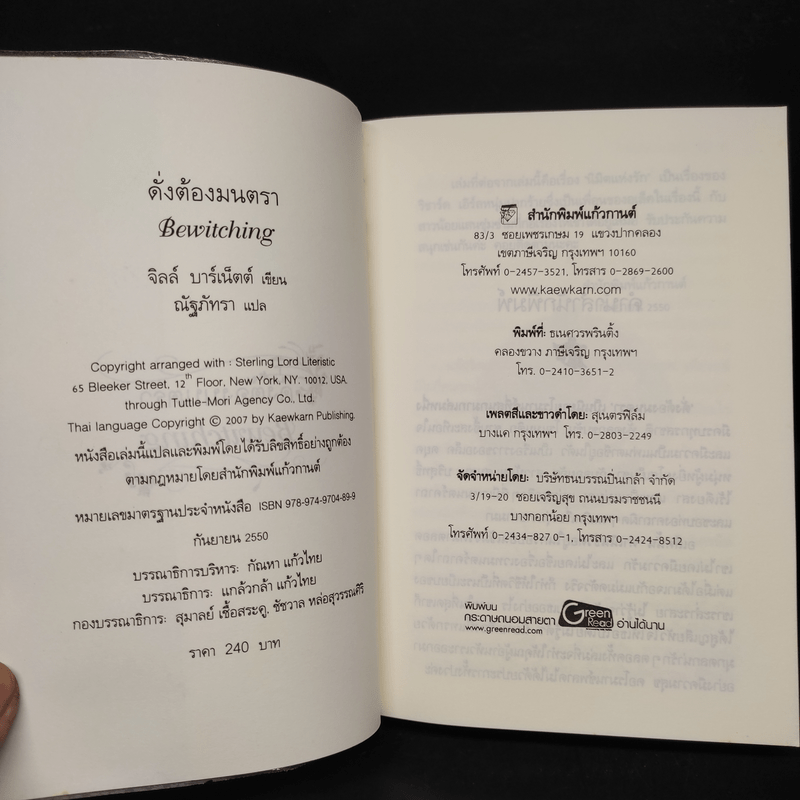 ดั่งต้องมนตรา
Bewitching
จิลล์ บาร์เน็ตต์ เขียน
ณัฐภัทรา แปล
Copyright arranged with : Sterling Lord Literistic
65 Bleeker Street, 12th Floor, New York, NY. 10012, USA,
through Tuttle-Mori Agency Co., Ltd.
Thai language Copyright © 2007 by Kaewkarn Publishing.
หนังสือเล่มนี้แปลและพิมพ์โดยได้รับลิขสิทธิ์อย่างถูกต้อง
ตามกฎหมายโดยสำนักพิมพ์แก้วกานต์
หมายเลขมาตรฐานประจำหนังสือ ISBN 978-974-9704-89-9
กันยายน 2550
บรรณาธิการบริหาร: กัณหา แก้วไทย
บรรณาธิการ: แกล้วกล้า แก้วไทย
กองบรรณาธิการ: สุมาลย์ เชื้อสระคู, ชัชวาล หล่อสุวรรณศิริ
ราคา 240 บาท
สำนักพิมพ์แก้วกานต์
83/3 ซอยเพชรเกษม 19 แขวงปากคลอง
เขตภาษีเจริญ กรุงเทพฯ 10160
โทรศัพท์ 0-2457-3521, โทรสาร 0-2869-2600
www.kaewkarn.com
พิมพ์ที่: ธเนศวรพรินติ้ง
คลองขวาง ภาษีเจริญ กรุงเทพฯ
โทร. 0-2410-3651-2
เพลตสีและขาวดำโดย: สุเนตรฟิล์ม
บางแค กรุงเทพฯ โทร. 0-2803-2249
จัดจำหน่ายโดย: บริษัทธนบรรณปิ่นเกล้า จำกัด
3/19-20 ซอยเจริญสุข ถนนบรมราชชนนี
บางกอกน้อย กรุงเทพฯ
โทรศัพท์ 0-2434-827 0-1, โทรสาร 0-2424-8512
พิมพ์บน
กระดาษถนอมสายตา Green Read อ่านได้นาน
www.greenread.com